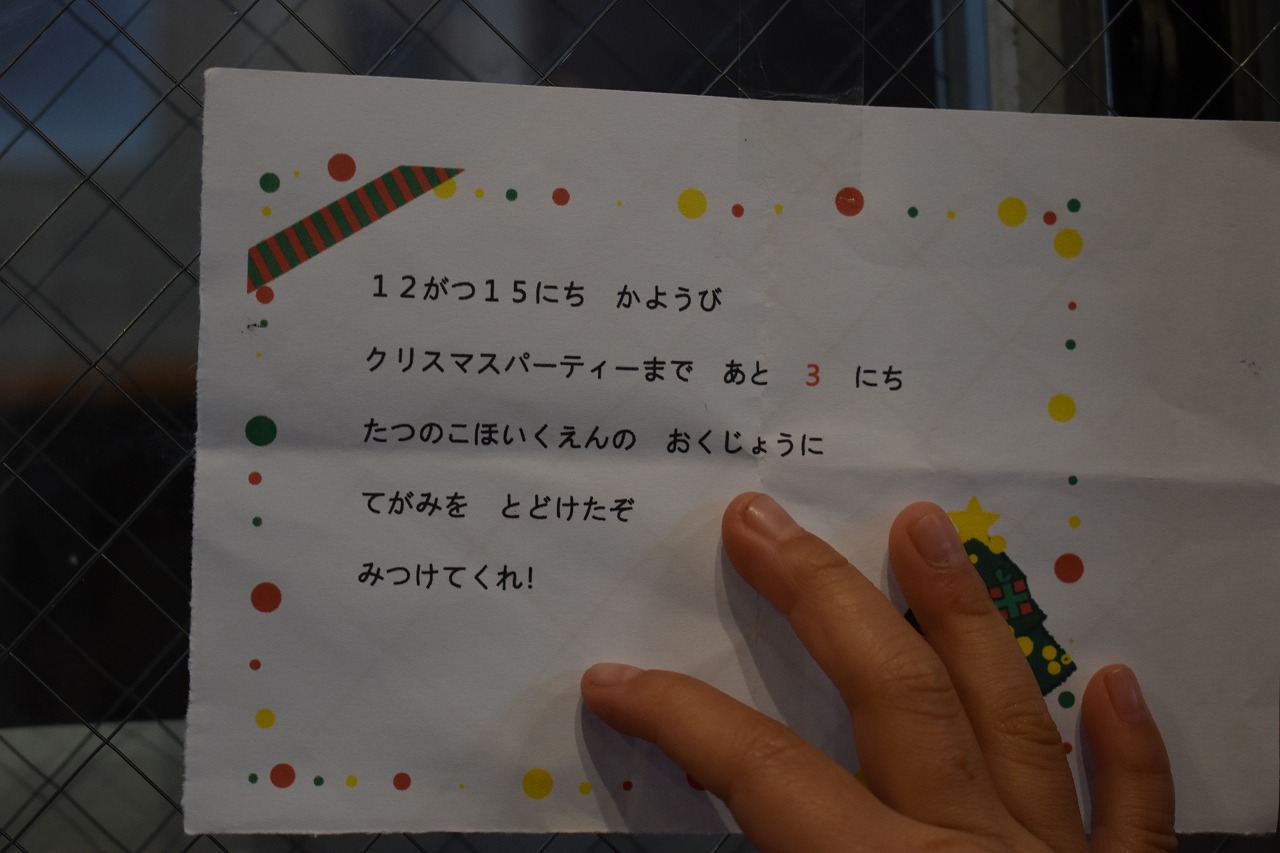 １２がつ１５にち　かようび
クリスマスパーティーまで　あと　3　にち
たつのこほいくえんの　おくじょうに
てがみを　とどけたぞ
みつけてくれ!